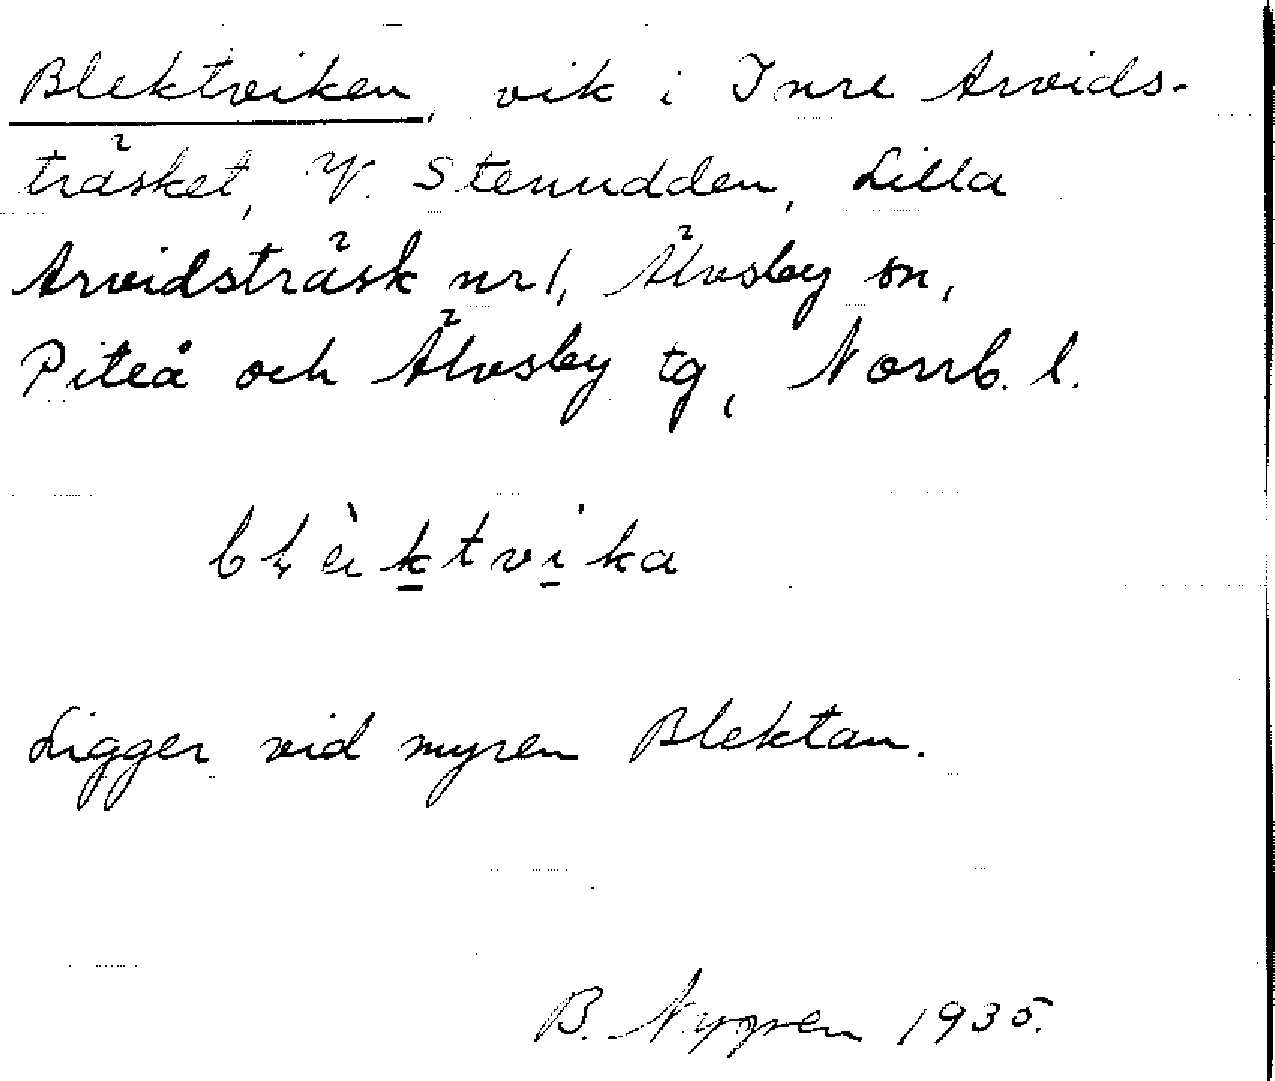 Blektviken, vik i Inre Arvids-
träsket, V. Stenudden, Lilla
Arvidsträsk nr 1, Älvsby sn,
Piteå och Älvsby tg, Norrb. l.
Ligger vid myren Blektan.
B. Nygren 1935.